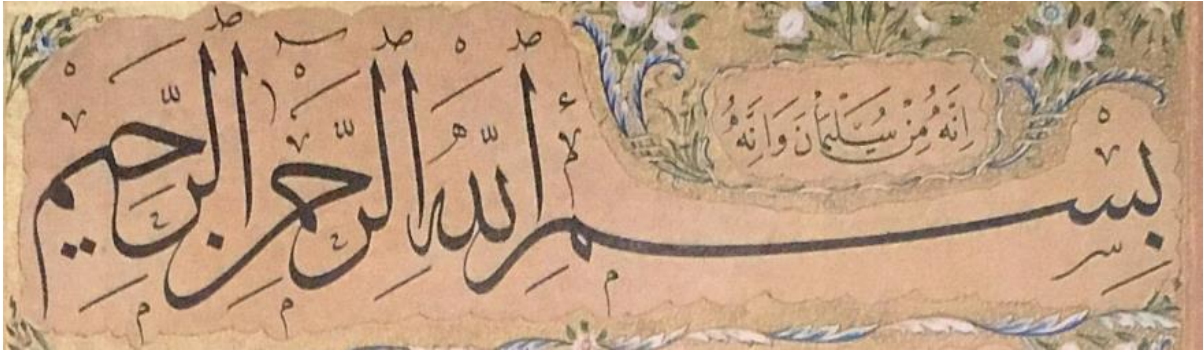 اِنَّهُ مِنْ سُلَيْمٰانَ وَاِنَّهُ
بِسْمِ اللّٰهِ الرَّحْمٰنِ الرَّحِيمِ